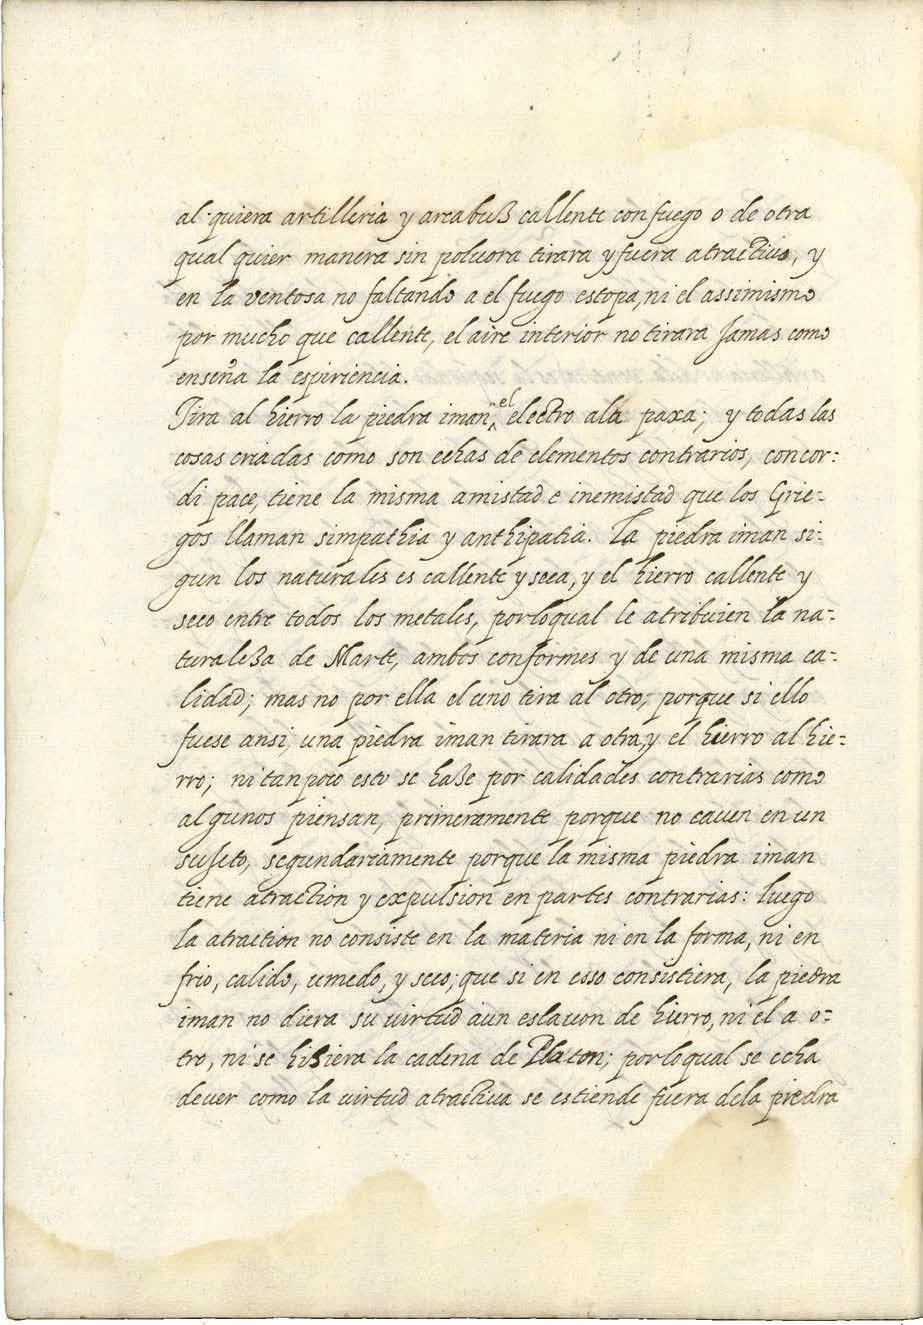 al quiera artilleria y arcabuß callente con fuego o de otra
qual quier manera sin poluora tirara y fuera atractiuo, y
en la ventosa no faltando a el fuego estopa, ni el assimismo
por mucho que callente, el aire interior no tirara Jamas como
enseña la espiriencia.
Tira al hierro la piedra iman, el electro ala paxa; y todas las
cosas criadas como son echas de elementos contrarios, concor:
di pace, tiene la misma amistad e inemistad que los Grie:
gos llaman simpathia y anthipatia. La piedra iman si:
gun los naturales es callente y seca, y el hierro callente y
seco entre todos los metales, porloqual le atribuien la na:
turaleßa de Marte, ambos conformes y de una misma ca:
lidad; mas no por ella el uno tira al otro; porque si ello
fuese ansi, una piedra iman tirara a otra, y el hierro al hie:
rro; ni tanpoco esto se haße por calidades contrarias como
algunos piensan, primeramente porque no cauen en un
sujeto, segundariamente porque la misma piedra iman
tiene atraction y expulsion en partes contrarias: luego
la atraction no consiste en la materia ni en la forma, ni en
frio, calido, umedo, y seco; que si en esso consistiera, la piedra
iman no diera su uirtud a un eslauon de hierro, ni el a o:
tro, ni se hißiera la cadena de Platon; porloqual se echa
deuer como la uirtud atractiua se estiende fuera dela piedra